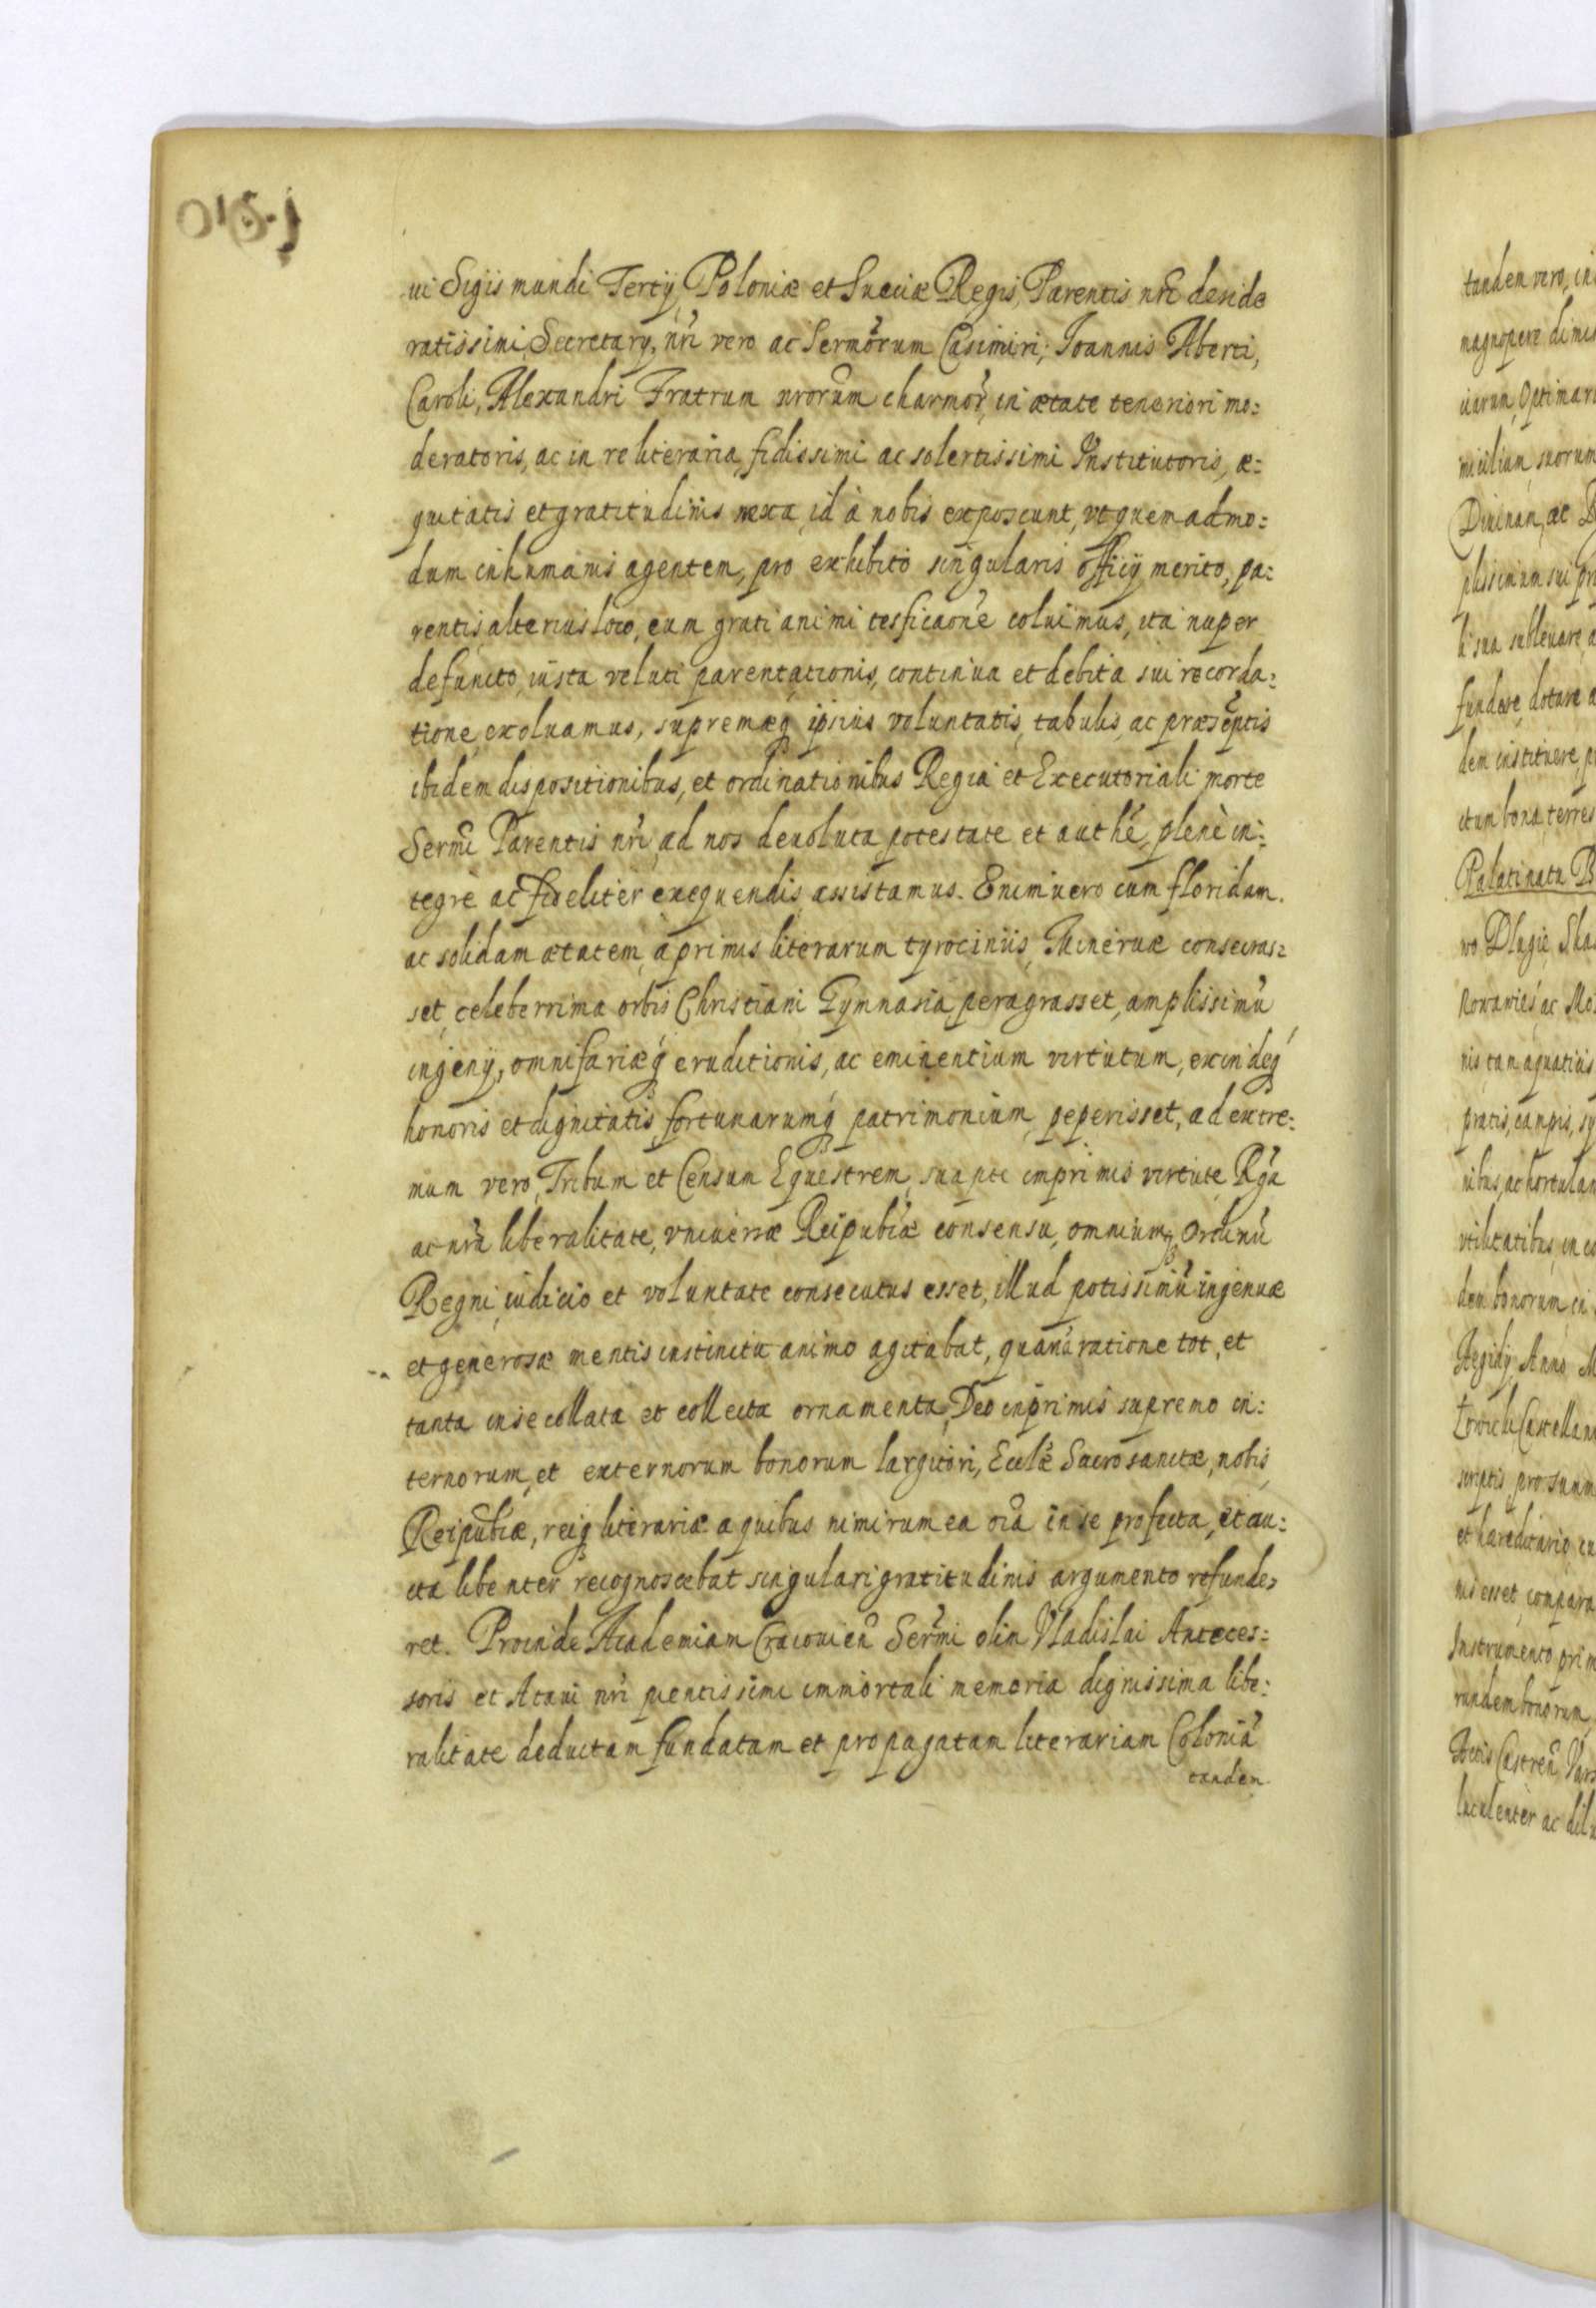 ui Sigismundi Tertij Poloniæ et Sueciæ Regis, Parentis nrĩ deside
ratissimi, Secretarij, nrĩ vero ac Sermõrum Casimiri, Joannis Alberti,
Caroli, Alexandri Fratrum nrorũm charmor̃, in ætate teneriori mo:
deratoris, ac in re literaria, fidissimi ac solertissimi Institutoris, æ:
quitatis et gratitudinis nexa, id à nobis exposcunt, vt quem admo:
dum in humanis agentem, pro exhibito singularis officij merito, pa:
rentis alterius loco, eum grati animi tesficaone coluimus, ita nuper
defuncto, iusta veluti parentationis, continua et debita sui recorda:
tione, exoluamus, supremæq ipsius voluntatis, tabulis, ac præscriptis
ibidem dispositionibus, et ordinationibus Regia et Executoriali morte
Sermĩ Parentis nrĩ, ad nos deuoluta potestate et authẽ, plenè in:
tegrè ac fideliter exequendis assistamus. Enimuero cum floridam
ac solidam ætatem, à primis literarum tyrociniis, Mineruæ consecras:
set, celeberrima orbis Christiani Gymnasia peragrasset, amplissimũ
ingenij, omnifariæq eruditionis, ac eminentium virtutum, exindeq
honoris et dignitatis, fortunarumq patrimonium, peperisset, ad extre:
mum vero, Tribum et Censum Equestrem, suapte imprimis virtute, Rg̃a
ac nrã liberalitate, vniuersæ Reipublæ consensu, omniumq Ordinũ
Regni, iudicio et voluntate consecutus esset, illud potissimũ ingenuæ
et generosæ mentis instinctu animo agitabat, quanã ratione tot, et
tanta in se collata et collecta ornamenta, Deo inprimis supremo in:
ternorum, et externorum bonorum largitori, Ecclæ Sacrosanctæ, nobis
Reipublæ, reiq literariæ a quibus nimirum ea oĩa in se profecta, et au:
cta libenter recognoscebat singulari gratitudinis argumento refunde,
ret. Proinde Academiam Cracouien Sermĩ olim Vladislai Anteces:
soris et Ataui nrĩ pientissimi immortali memoria dignissima libe:
ralitate deductam fundatam et propagatam literariam Coloniã
tandem
tandem vero, in
magnopere
uarum, Optimar
micilium, suorum
Diuinam, ac
plissimum sui
li sua subleuare, a
fundare, dotare a
dem instituere,
itum bona terres
Palatinatu
wo Dlugie,
Nowawies ac
nis tam aquaticis
pratis, campis,
nibus, ac hortulan
vtilitatibus, in
dem bonorum in
Aegidij Anno
Castellan
scriptis pro summ
et hæreditario
nis esset, compara
Instrumento prim
rundem bonorum
Actis Castren
luculenter ac